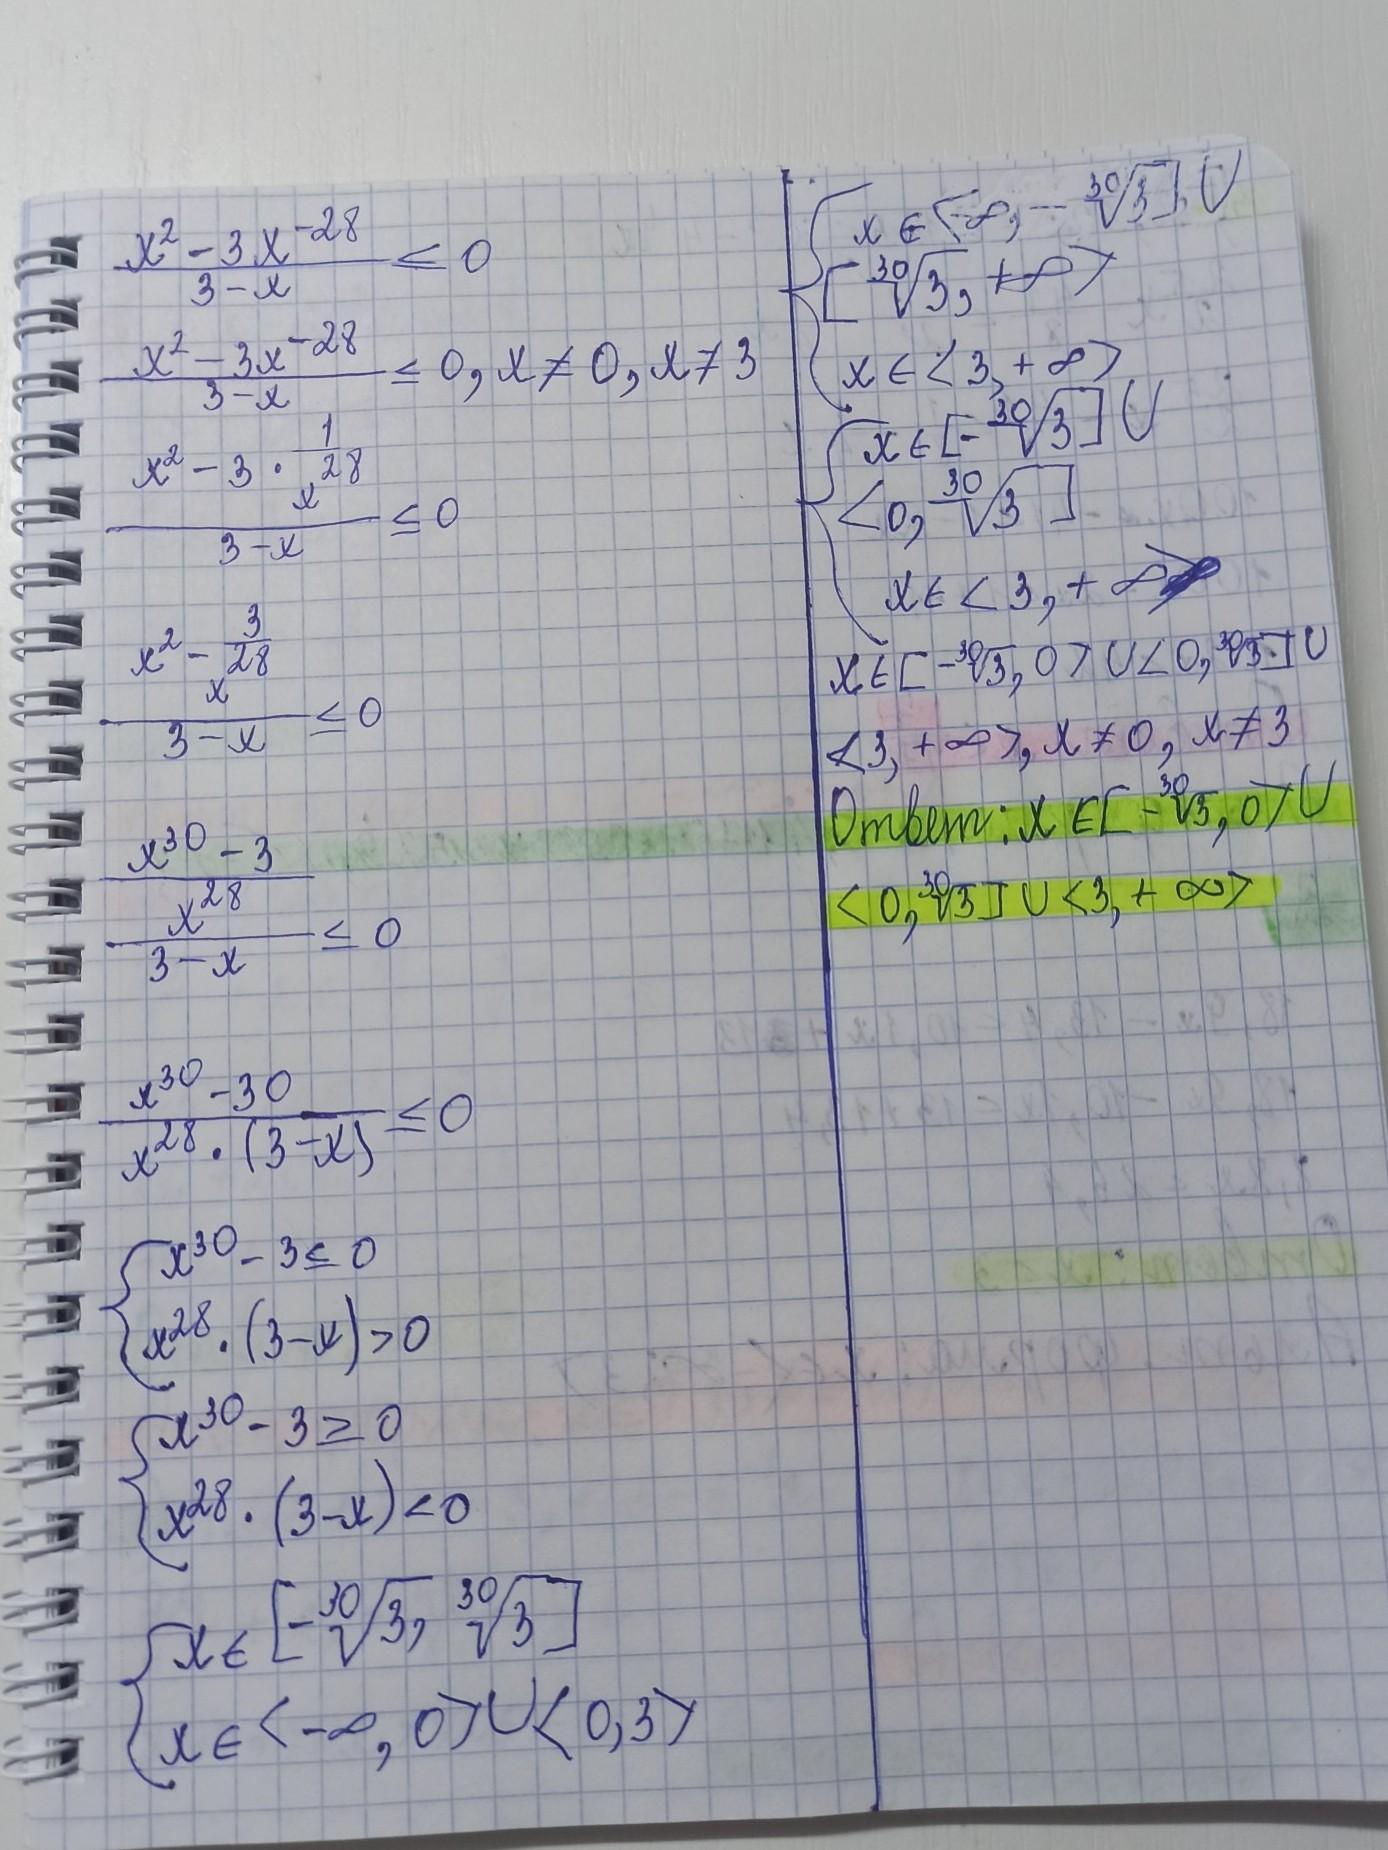 x² - 3x⁻²⁸
3 - x ≤ 0
x² - 3x⁻²⁸
3 - x ≤ 0, x ≠ 0, x ≠ 3
x² - 3 · 1
x²⁸
3 - x ≤ 0
x² - 3
x²⁸
3 - x ≤ 0
x³⁰ - 3
x²⁸
3 - x ≤ 0
x³⁰ - 30
x²⁸ · (3 - x) ≤ 0
{ x³⁰ - 3 ≤ 0
x²⁸ · (3 - x) > 0
{ x³⁰ - 3 ≥ 0
x²⁸ · (3 - x) < 0
{ x ∈ [-³⁰√3, ³⁰√3]
x ∈ <-∞, 0> ∪ <0, 3>
{ x ∈ <-∞, -³⁰√3] ∪
[³⁰√3, +∞>
x ∈ <3, +∞>
{ x ∈ [-³⁰√3] ∪
<0, ³⁰√3]
x ∈ <3, +∞>
x ∈ [-³⁰√3, 0> ∪ <0, ³⁰√3] ∪
<3, +∞>, x ≠ 0, x ≠ 3
Ответ: x ∈ [-³⁰√3, 0> ∪
<0, ³⁰√3] ∪ <3, +∞>